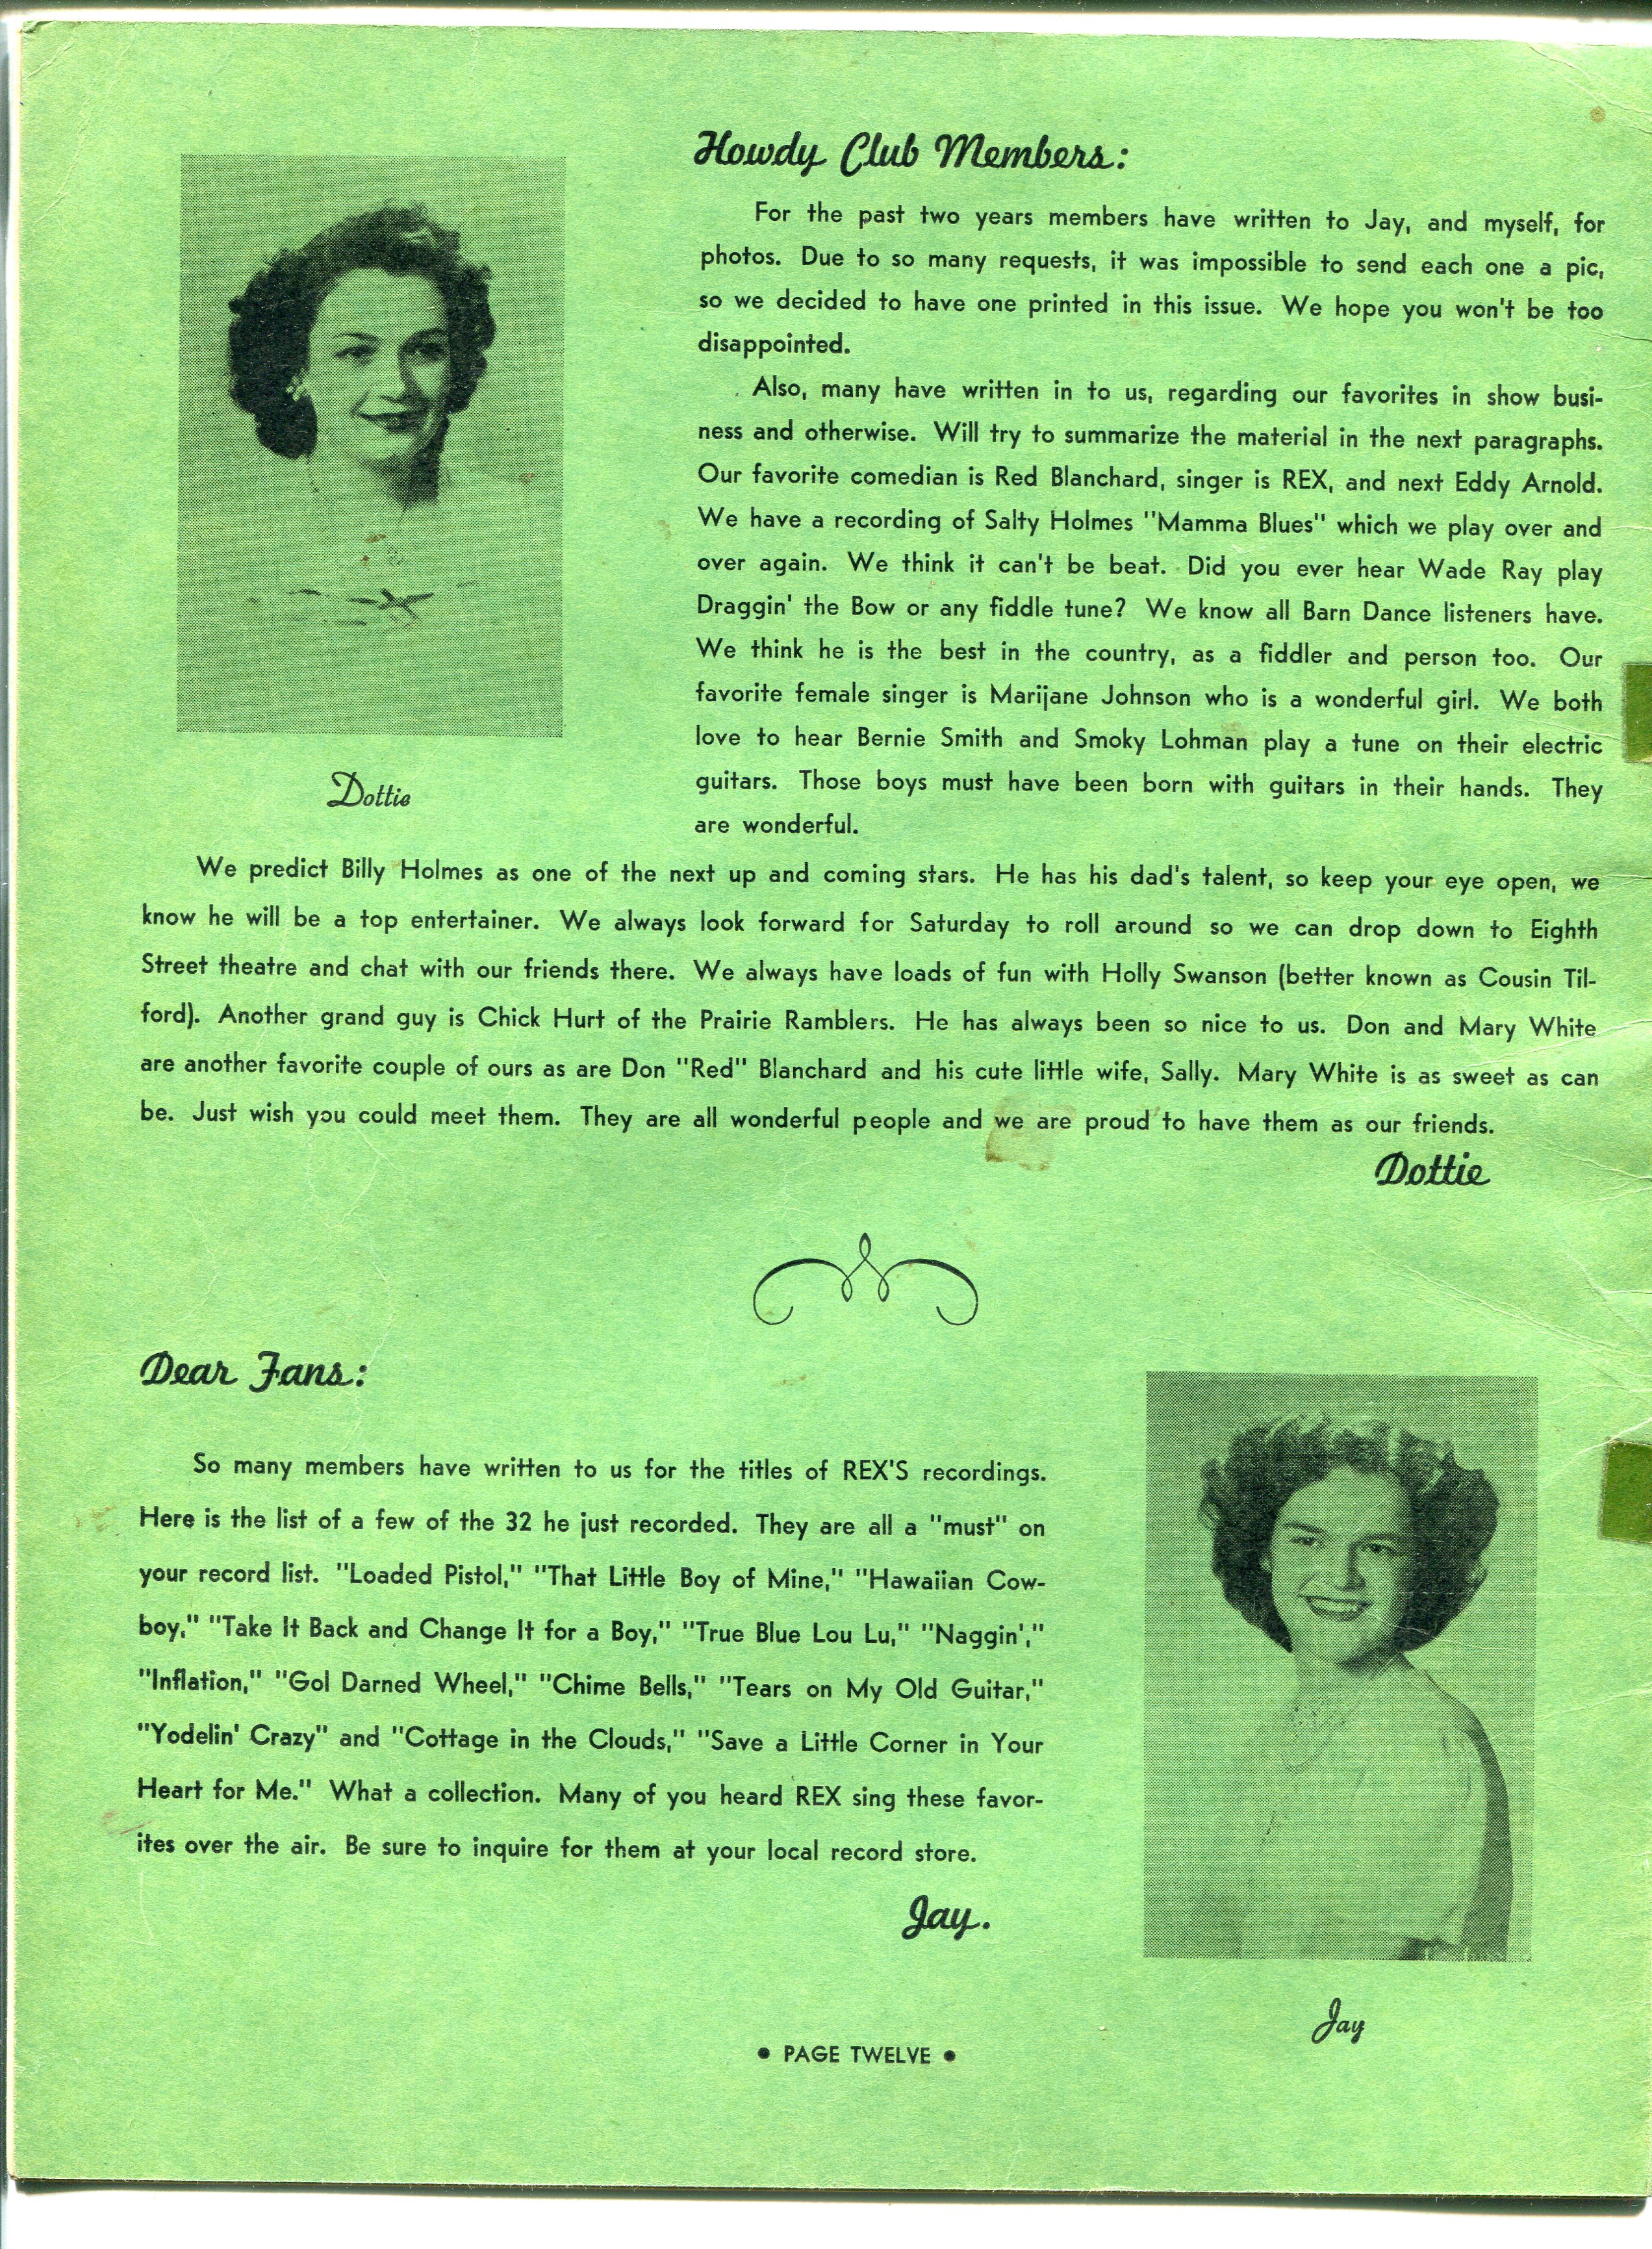 Howdy Club Members:
For the past two years members have written to Jay, and myself, for
photos. Due to so many requests, it was impossible to send each one a pic,
so we decided to have one printed in this issue. We hope you won't be too
disappointed.
Also, many have written in to us, regarding our favorites in show busi-
ness and otherwise. Will try to summarize the material in the next paragraphs.
Our favorite comedian is Red Blanchard, singer is REX, and next Eddy Arnold.
We have a recording of Salty Holmes "Mamma Blues" which we play over and
over again. We think it can't be beat. Did you ever hear Wade Ray play
Draggin' the Bow or any fiddle tune? We know all Barn Dance listeners have.
We think he is the best in the country, as a fiddler and person too. Our
favorite female singer is Marijane Johnson who is a wonderful girl. We both
love to hear Bernie Smith and Smoky Lohman play a tune on their electric
guitars. Those boys must have been born with guitars in their hands. They
are wonderful.
Dottie
We predict Billy Holmes as one of the next up and coming stars. He has his dad's talent, so keep your eye open, we
know he will be a top entertainer. We always look forward for Saturday to roll around so we can drop down to Eighth
Street theatre and chat with our friends there. We always have loads of fun with Holly Swanson (better known as Cousin Til-
ford). Another grand guy is Chick Hurt of the Prairie Ramblers. He has always been so nice to us. Don and Mary White
are another favorite couple of ours as are Don "Red" Blanchard and his cute little wife, Sally. Mary White is as sweet as can
be. Just wish you could meet them. They are all wonderful people and we are proud to have them as our friends.
Dottie
Dear Fans:
So many members have written to us for the titles of REX'S recordings.
Here is the list of a few of the 32 he just recorded. They are all a "must" on
your record list. "Loaded Pistol," "That Little Boy of Mine," "Hawaiian Cow-
boy," "Take It Back and Change It for a Boy," "True Blue Lou Lu," "Naggin'," 
"Inflation," "Gol Darned Wheel," "Chime Bells," "Tears on My Old Guitar,"
"Yodelin' Crazy" and "Cottage in the Clouds," "Save a Little Corner in Your
Heart for Me." What a collection. Many of you heard REX sing these favor-
ites over the air. Be sure to inquire for them at your local record store.
Jay.
Jay
• PAGE TWELVE •